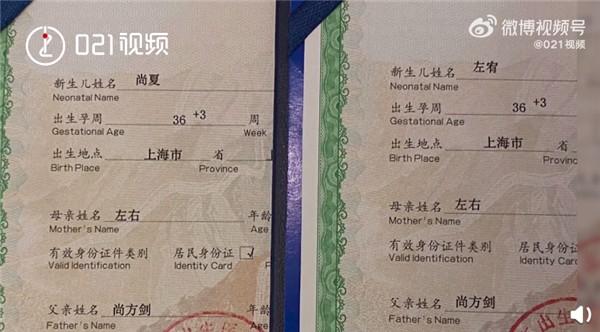 021视频
微博视频号
@021视频
新生儿姓名 尚夏
Neonatal Name
出生孕周 36 +3 周
Gestational Age Week
出生地点 上海市 省
Birth Place Province
母亲姓名 左右 年龄
Mother's Name Ag
有效身份证件类别 居民身份证 ✓
Valid Identification Identity Card
父亲姓名 尚方剑 年龄
Father's Name
新生儿姓名 左宥
Neonatal Name
出生孕周 36 +3
Gestational Age
出生地点 上海市 省
Birth Place Province
母亲姓名 左右
Mother's Name
有效身份证件类别 居民身份证
Valid Identification Identity Card
父亲姓名 尚方剑
Father's Name